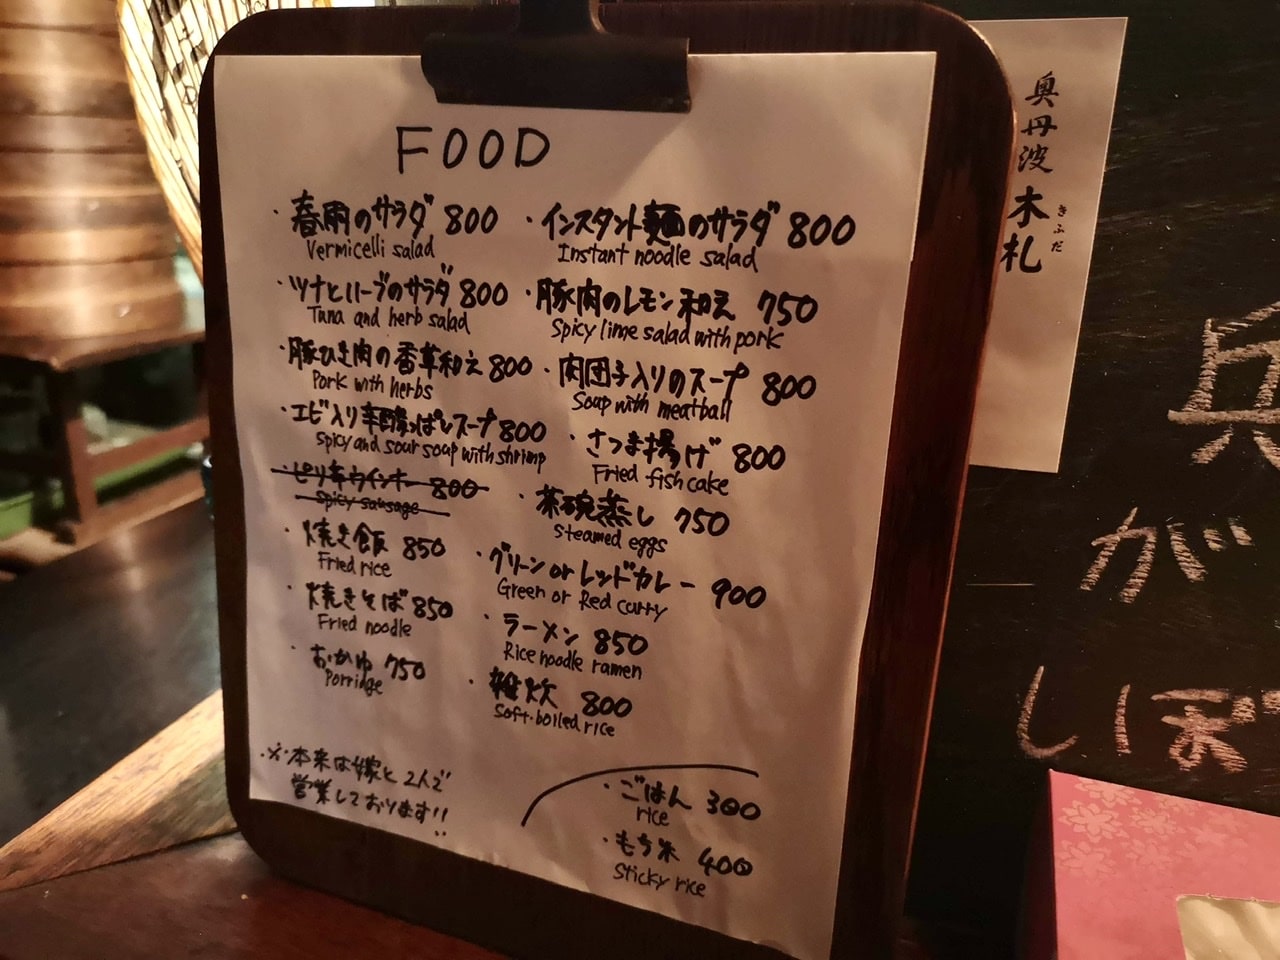 FOOD
・春雨のサラダ 800
Vermicelli salad
・ツナとハーブのサラダ 800
Tuna and herb salad
・豚ひき肉の香草和え 800
Pork with herbs
・エビ入り辛酸っぱしスープ 800
spicy and sour soup with shrimp
・ピリ辛ウインナー 800
Spicy sausage
・焼き飯 850
Fried rice
・焼きそば 850
Fried noodle
・おかゆ 750
Porridge
・インスタント麺のサラダ 800
Instant noodle salad
・豚肉のレモン和え 750
Spicy lime salad with pork
・肉団子入りのスープ 800
Soup with meatball
・さつま揚げ 800
Fried fish cake
・茶碗蒸し 750
Steamed eggs
・グリーン or レッドカレー 900
Green or Red curry
・ラーメン 850
Rice noodle ramen
・雑炊 800
Soft-boiled rice
・ごはん 300
rice
・もち米 400
Sticky rice
※本来は嫁と2人で
営業しております!!
奥丹波 木札
きふだ
兵
が
しぼ